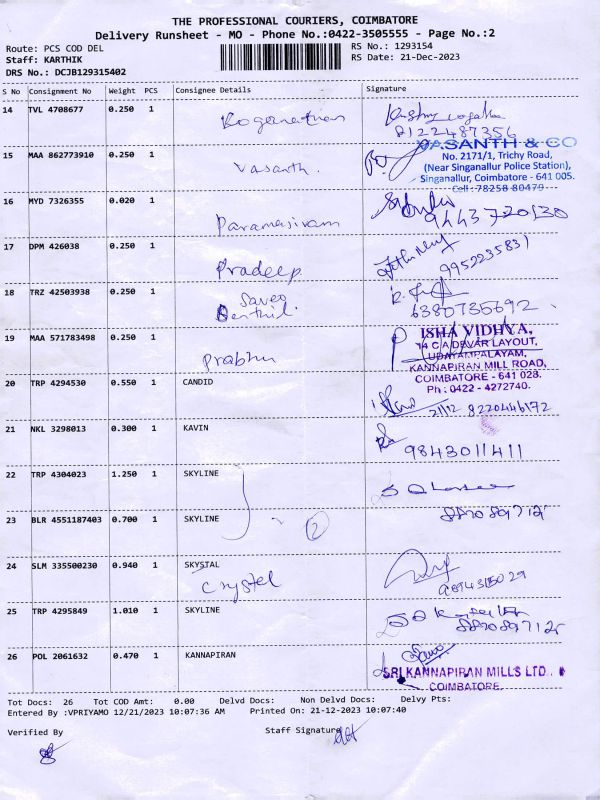 THE PROFESSIONAL COURIERS, COIMBATORE
Delivery Runsheet - MO - Phone No.:0422-3505555 - Page No.:2
Route: PCS COD DEL
RS No.: 1293154
Staff: KARTHIK
RS Date: 21-Dec-2023
DRS No.: DCJB129315402
S No Consignment No Weight PCS Consignee Details Signature
14 TVL 4708677 0.250 1
8122487356
15 MAA 862773910 0.250 1 Vasanth. VASANTH & CO
No. 2171/1, Trichy Road,
(Near Singanallur Police Station),
Singanallur, Coimbatore - 641 005.
Cell : 78258 80479
16 MYD 7326355 0.020 1 Paramasivam 9443720130
17 DPM 426038 0.250 1 Pradeep 9952235831
18 TRZ 42503938 0.250 1 6380735692
19 MAA 571783498 0.250 1 Prabhu ISHA VIDHYA,
14 C A DEVAR LAYOUT,
UDAYAMPALAYAM,
KANNAPIRAN MILL ROAD,
COIMBATORE - 641 028.
Ph : 0422 - 4272740.
20 TRP 4294530 0.550 1 CANDID 21/12 8220446172
21 NKL 3298013 0.300 1 KAVIN 9843011411
22 TRP 4304023 1.250 1 SKYLINE
23 BLR 4551187403 0.700 1 SKYLINE 2
24 SLM 335500230 0.940 1 SKYSTAL
Crystel
25 TRP 4295849 1.010 1 SKYLINE
26 POL 2061632 0.470 1 KANNAPIRAN
SRI KANNAPIRAN MILLS LTD.
COIMBATORE.
Tot Docs: 26 Tot COD Amt: 0.00 Delvd Docs: Non Delvd Docs: Delvy Pts:
Entered By :VPRIYAMO 12/21/2023 10:07:36 AM Printed On: 21-12-2023 10:07:40
Verified By Staff Signature